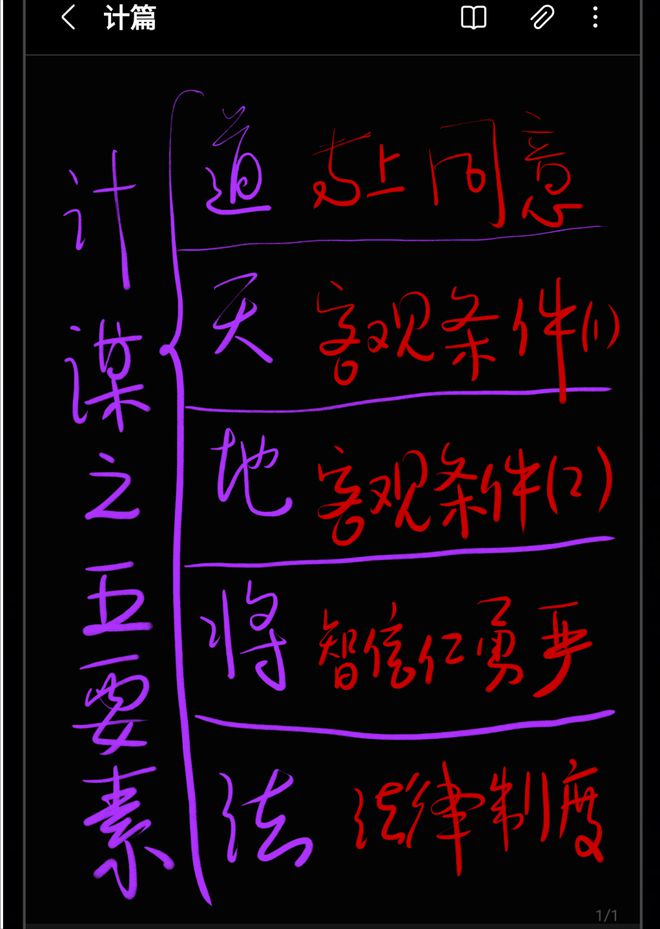 计篇
计谋之五要素
道 与上同意
天 客观条件(1)
地 客观条件(2)
将 智信仁勇严
法 法律制度
1/1